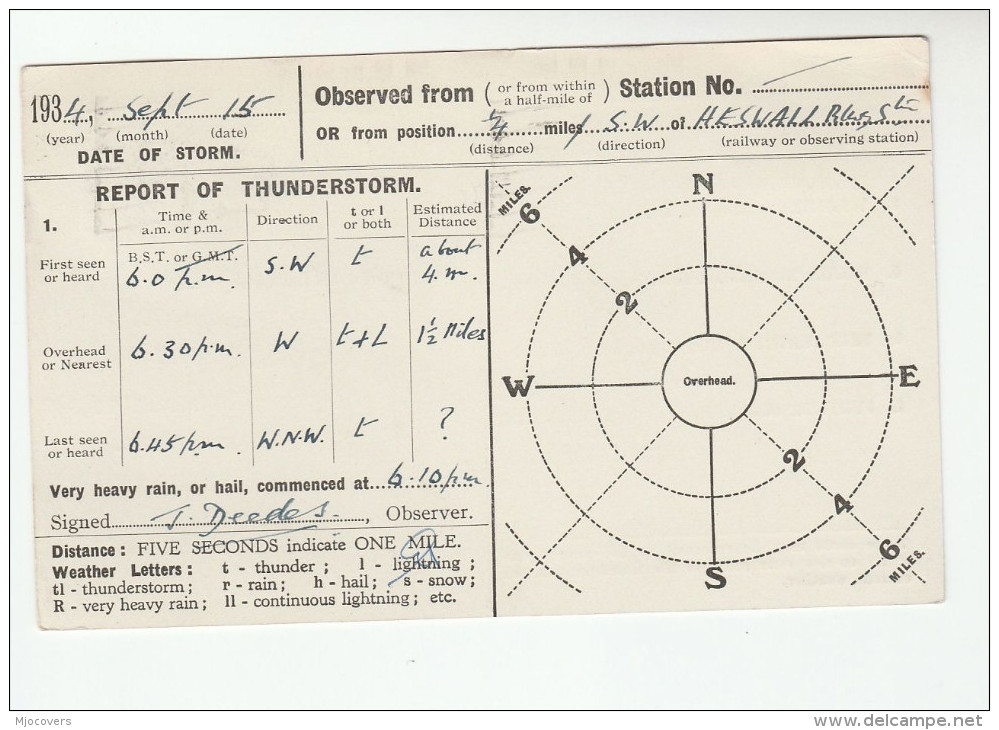 1934, Sept 15
(year) (month) (date)
DATE OF STORM.
Observed from ( or from within a half-mile of ) Station No.
OR from position ¼ miles S.W of HESWALL Rlwy Stn
(distance) (direction) (railway or observing station)
REPORT OF THUNDERSTORM.
1. Time & a.m. or p.m. Direction t or l or both Estimated Distance
B.S.T. or G.M.T.
First seen or heard 6.0 p.m. S.W t about 4. m.
Overhead or Nearest 6.30 p.m. W t+L 1½ Miles
Last seen or heard 6.45 p.m W.N.W. t ?
Very heavy rain, or hail, commenced at 6.10 p.m.
Signed J. Deedes, Observer.
Distance : FIVE SECONDS indicate ONE MILE.
Weather Letters : t - thunder ; l - lightning ;
tl - thunderstorm ; r - rain ; h - hail ; s - snow ;
R - very heavy rain ; ll - continuous lightning ; etc.
MILES.
6
4
2
N
W
Overhead.
E
2
4
6
MILES.
S
Mjocovers
delcampe.net